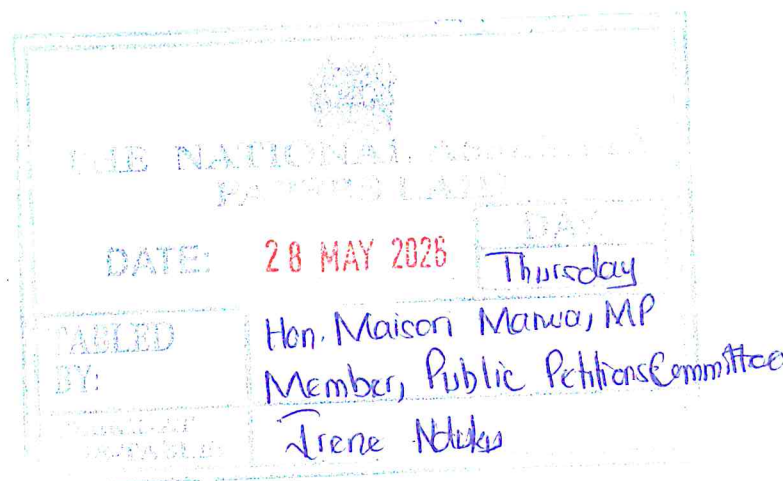 THE NATIONAL ASSEMBLY
PAPERS LAID
DATE: 28 MAY 2026
DAY
Thursday
TABLED BY:
Hon. Maison Marwa, MP
Member, Public Petitions Committee
Irene Nduku